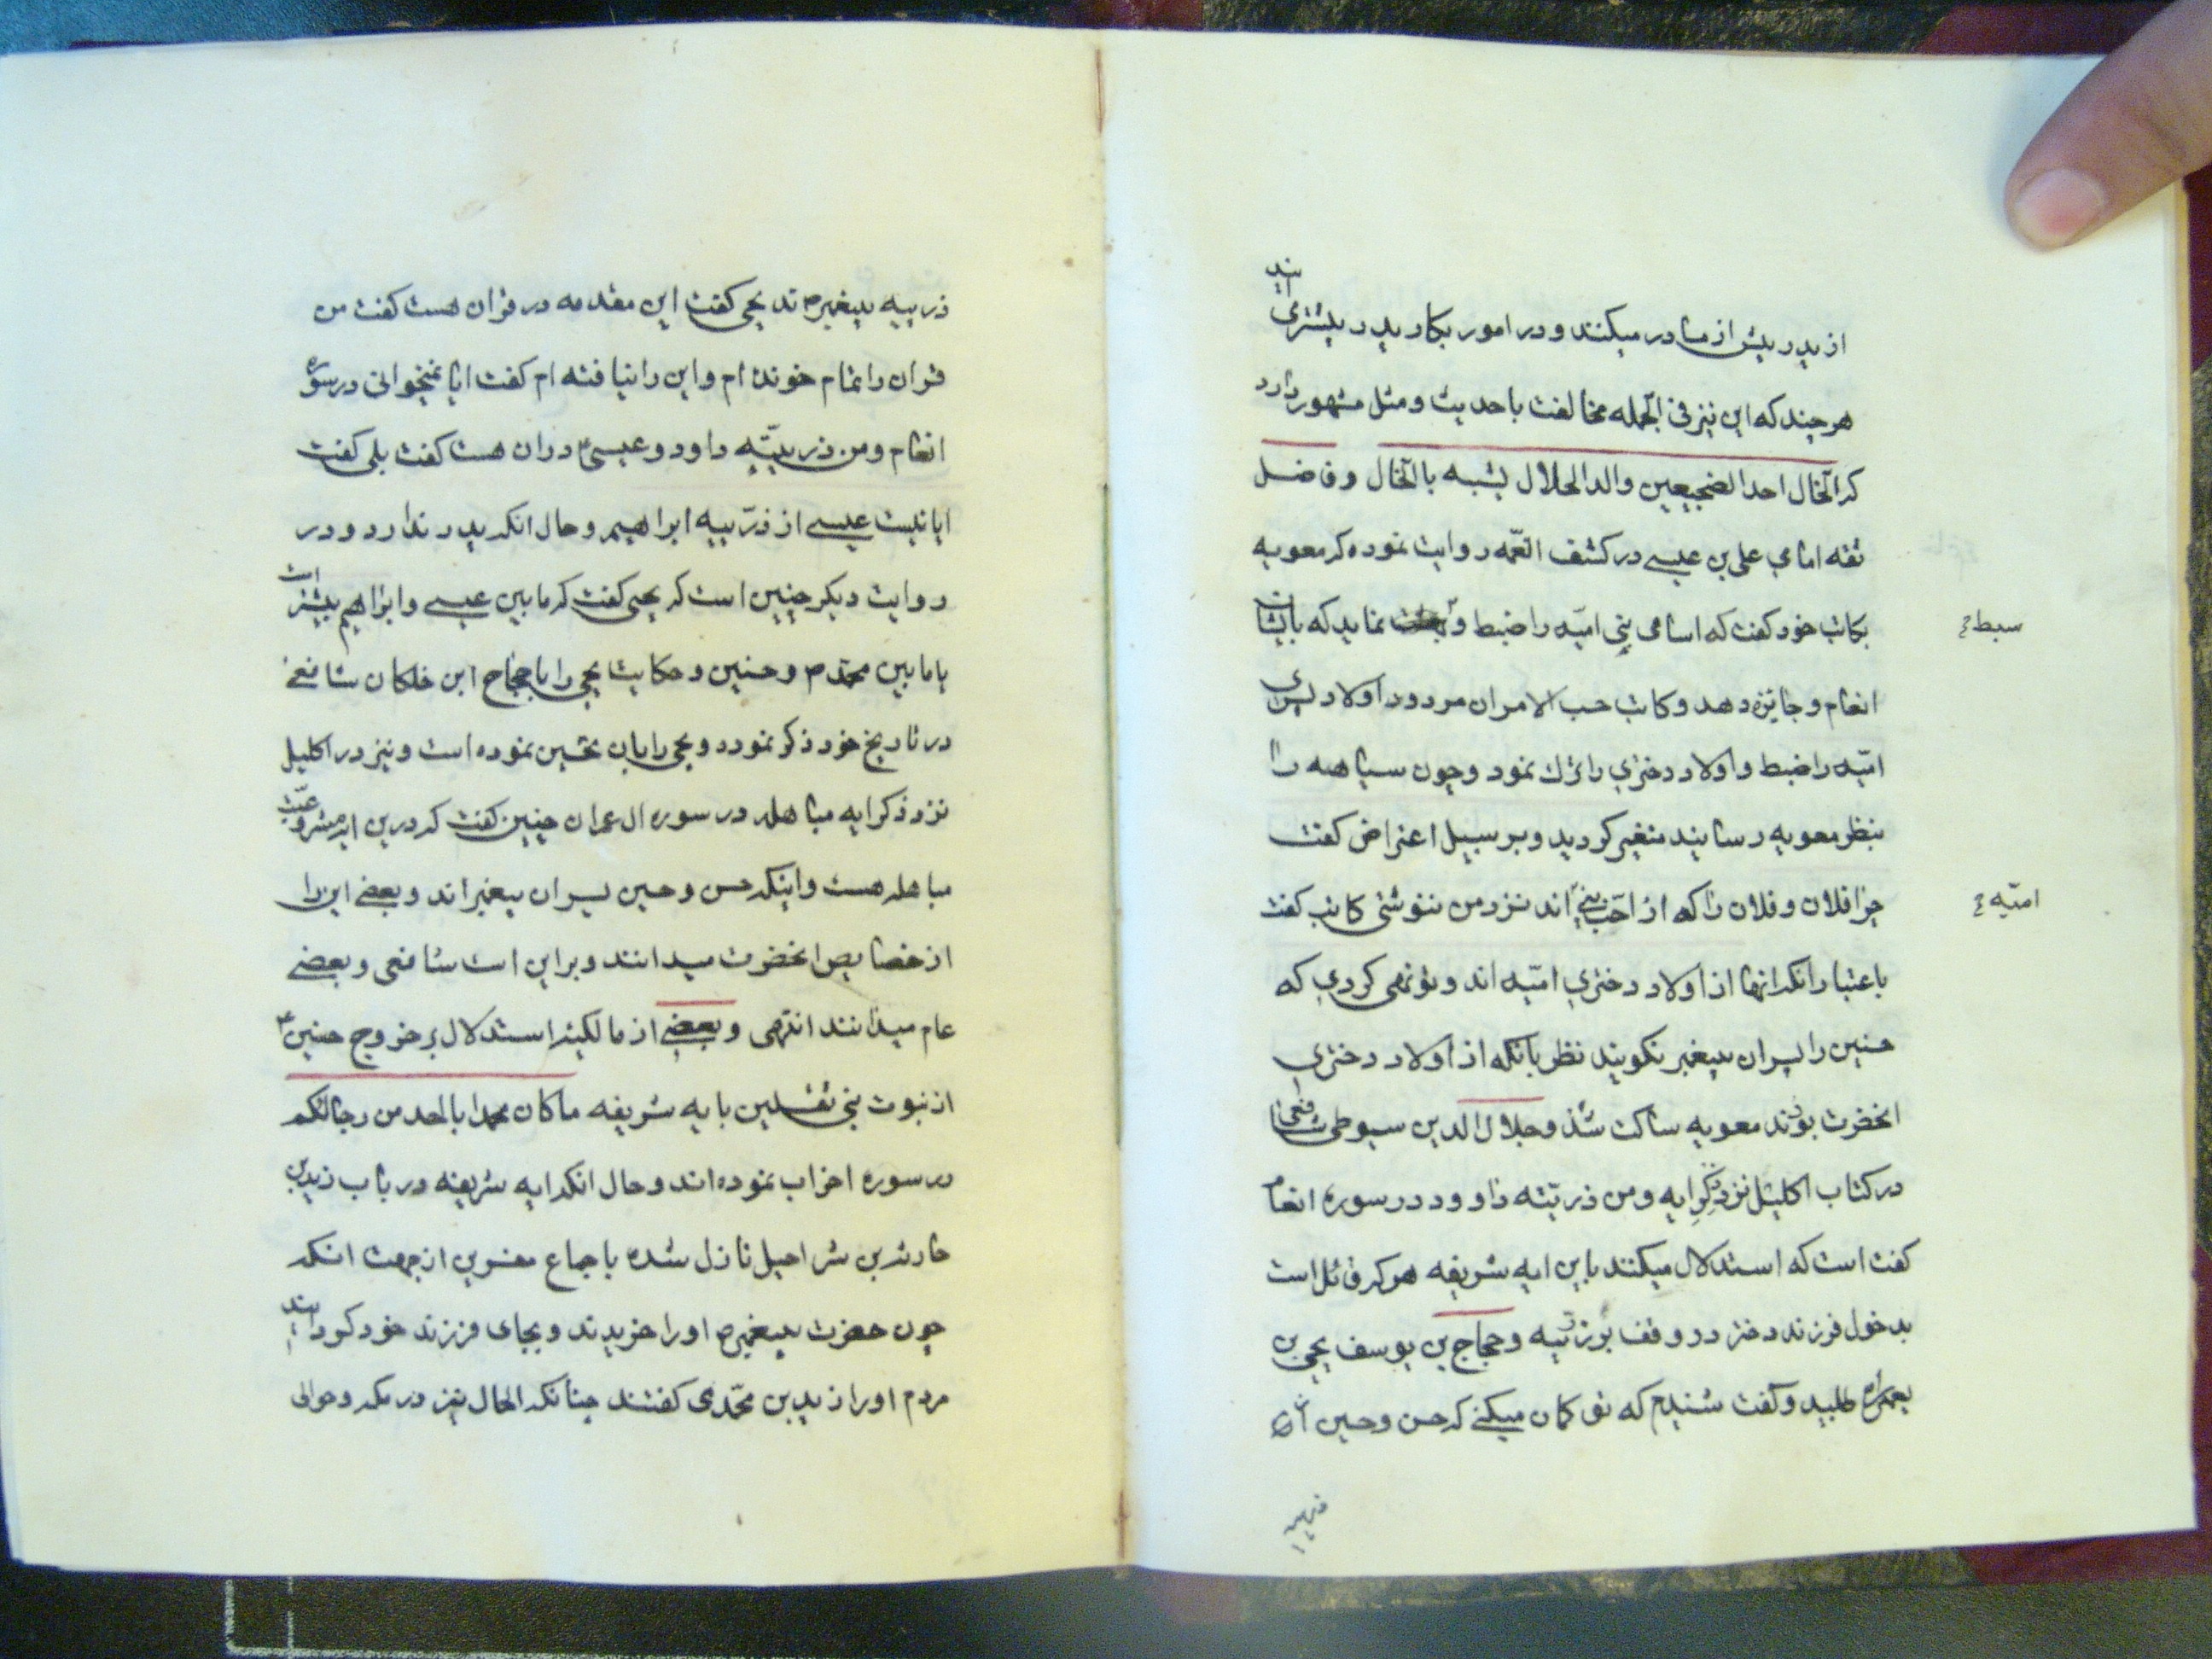 از پدر پیش از مادر میکنند و در امور بکار پدر بیشتر می ایند
هر چند که این نیز فی الجمله مخالفت با حدیث و مثل مشهور دارد
که الخال احد الضجیعین والد الحلال یشبه بالخال و فاضل
ثقه امامی علی بن عیسی در کشف الغمه روایت نموده که معویه
بکاتب خود کفت که اسامی بنی امیّه را ضبط و نماید که بایشان
سبط
انعام و جایزه دهد و کاتب حسب الامر ان مردود اولاد پسری
امیّه را ضبط و اولاد دختری را ترک نمود و چون سیاهه را
بنظر معویه رسانید متغیر کردید و بر سبیل اعتراض کفت
چرا فلان و فلان را که از احب بنی اند نزد من ننوشتی کاتب کفت
امیّه
باعتبار انکه انها از اولاد دختری امیّه اند و تو نهی کردی که
حسنین را پسران پیغمبر نکویند نظر بانکه از اولاد دختری
انحضرت بودند معویه ساکت شد و جلال الدین سیوطی شافعی
در کتاب اکلیل نزد ذکر ایه و من ذریّته داوود در سوره انعام
کفت است که استدلال میکنند باین ایه شریفه هر که قائل است
بدخول فرزند دختر در وقف بر ذرّیه و حجاج بن یوسف یحیی بن
یعمر را طلبید و کفت شنیدم که تو کمان میکنی که حسن و حسین از
ذریه
ذرییه پیغمبرص اند یحیی کفت این مقدمه در قران هست کفت من
قران را تمام خونده ام و این را نیافته ام کفت ایا نمیخوانی در سوره
انعام و من ذریّته داود و عیسی دران هست کفت بلی کفت
ایا نیست عیسی از ذرّییه ابراهیم و حال انکه پدر ندارد و در
روایت دیکر چنین است که یحیی کفت که ما بین عیسی و ابراهیم بیشتر است
یا ما بین محمدص و حسنین و حکایت یحیی را با حجاج ابن خلکان شافعی
در تاریخ خود ذکر نموده و یحیی را بان تحسین نموده است و نیز در اکلیل
نزد ذکر ایه مباهله در سوره ال عمران چنین کفت که درین ایه مشروعیّت
مباهله هست و اینکه حسن و حسین پسران پیغمبراند و بعضی این را
از خصایص انحضرت میدانند و براین است شافعی و بعضی
عام میدانند انتهی و بعضی از مالکیّه استدلال بر خروج حسنین
از نبوت بنی ثقلین بایه شریفه ما کان محمد ابا احد من رجالکم
در سوره احزاب نموده اند و حال انکه ایه شریفه در باب زید بن
حارثه بن شراحیل نازل شده باجماع مفسرین از جهت انکه
چون حضرت پیغمبرص او را خریدند و بجای فرزند خود کردانیدند
مردم او را زید بن محمّدی کفتند چنانکه الحال نیز در مکه و حوالی